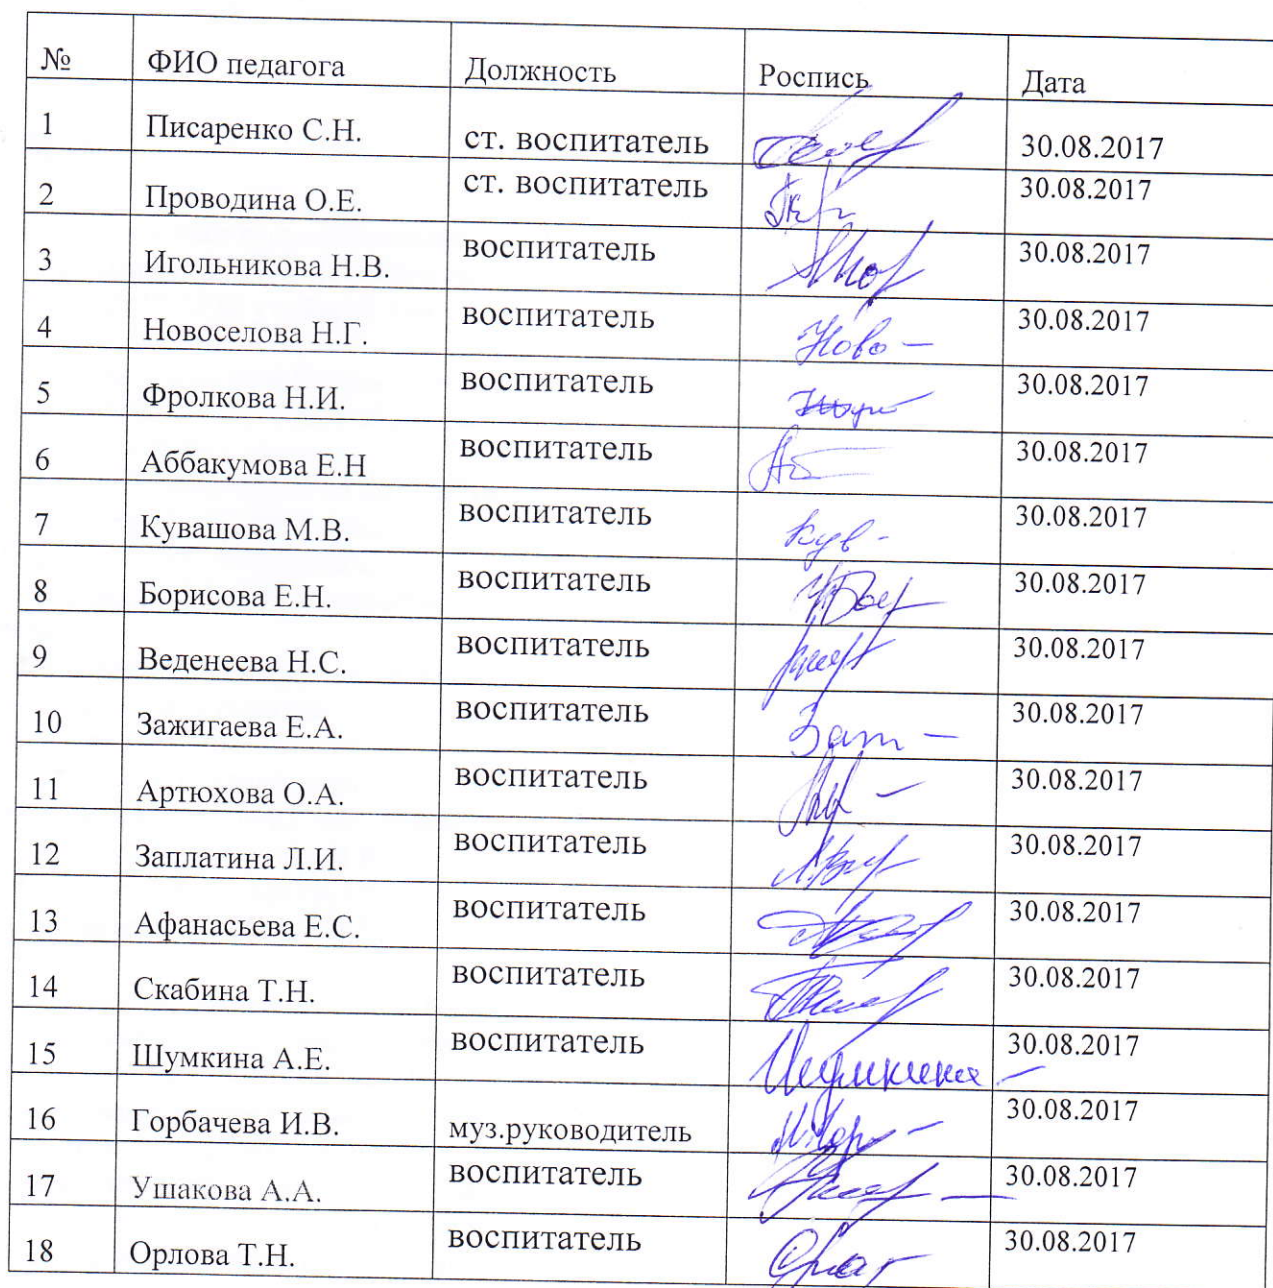 № ФИО педагога Должность Роспись Дата
1 Писаренко С.Н. ст. воспитатель 30.08.2017
2 Проводина О.Е. ст. воспитатель 30.08.2017
3 Игольникова Н.В. воспитатель 30.08.2017
4 Новоселова Н.Г. воспитатель Ново- 30.08.2017
5 Фролкова Н.И. воспитатель 30.08.2017
6 Аббакумова Е.Н воспитатель Аб 30.08.2017
7 Кувашова М.В. воспитатель Кув- 30.08.2017
8 Борисова Е.Н. воспитатель 30.08.2017
9 Веденеева Н.С. воспитатель 30.08.2017
10 Зажигаева Е.А. воспитатель 30.08.2017
11 Артюхова О.А. воспитатель 30.08.2017
12 Заплатина Л.И. воспитатель 30.08.2017
13 Афанасьева Е.С. воспитатель 30.08.2017
14 Скабина Т.Н. воспитатель 30.08.2017
15 Шумкина А.Е. воспитатель Шумкина 30.08.2017
16 Горбачева И.В. муз.руководитель 30.08.2017
17 Ушакова А.А. воспитатель 30.08.2017
18 Орлова Т.Н. воспитатель 30.08.2017